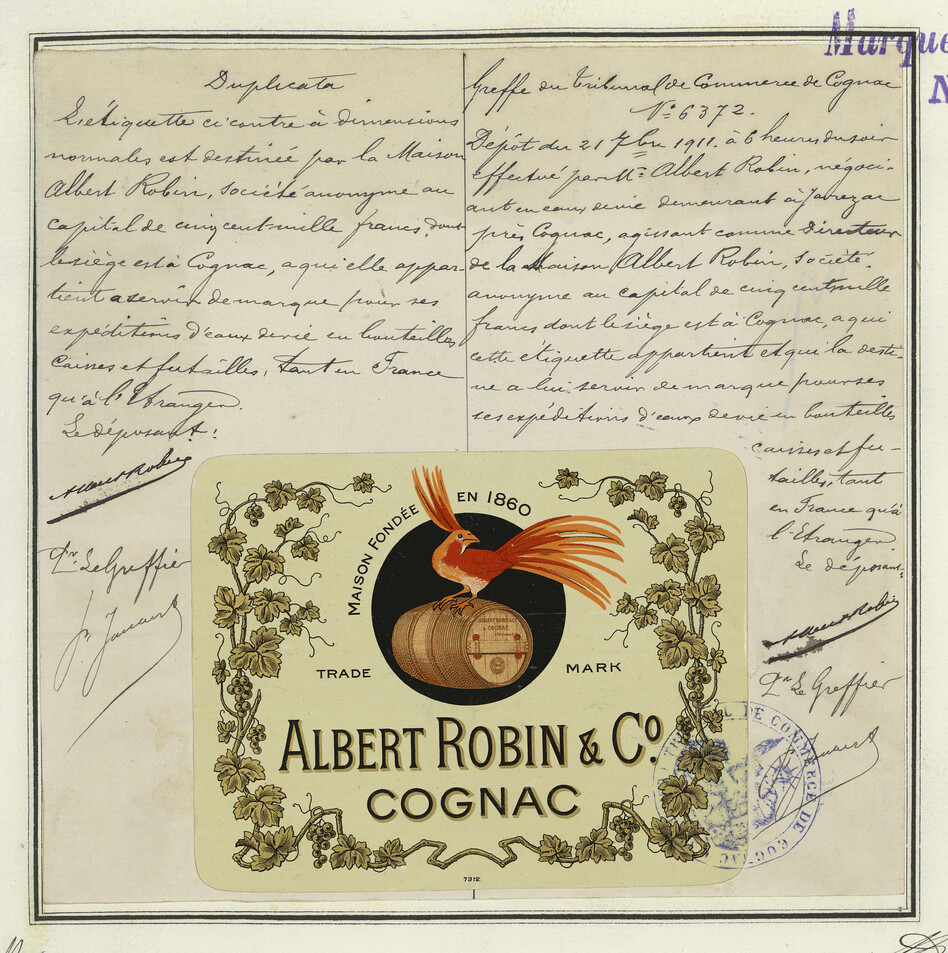 Marque
N
Duplicata
L'étiquette ci contre à dimensions
normales est destinée par la Maison
Albert Robin, Société anonyme au
capital de cinq cent mille francs, dont
le siège est à Cognac, a qui elle appar-
tient a servir de marque pour ses
expéditions d'eaux de vie en bouteilles
caisses et futailles, tant en France
qu'à l'Etranger.
Le déposant:
Albert Robin
Pr Le Greffier
Greffe du Tribunal de Commerce de Cognac
No 6372.
Dépôt du 21 7bre 1911. à 6 heures du soir
effectué par Mr Albert Robin, négoci-
ant en eaux de vie demeurant à Javrezac
près Cognac, agissant comme Directeur
de la Maison Albert Robin, Société
anonyme au capital de cinq cent mille
francs dont le siège est à Cognac, a qui
cette étiquette appartient et qui la desti-
ne a lui servir de marque pour ses
ses expéditions d'eaux de vie en bouteilles
caisses et fu-
tailles, tant
en France qu'à
l'Etranger
Le déposant:
Albert Robin
Pr Le Greffier
MAISON FONDÉE EN 1860
ALBERT ROBIN & Co
COGNAC
TRADE MARK
ALBERT ROBIN & Co.
COGNAC
7312
TRIBUNAL DE COMMERCE DE COGNAC